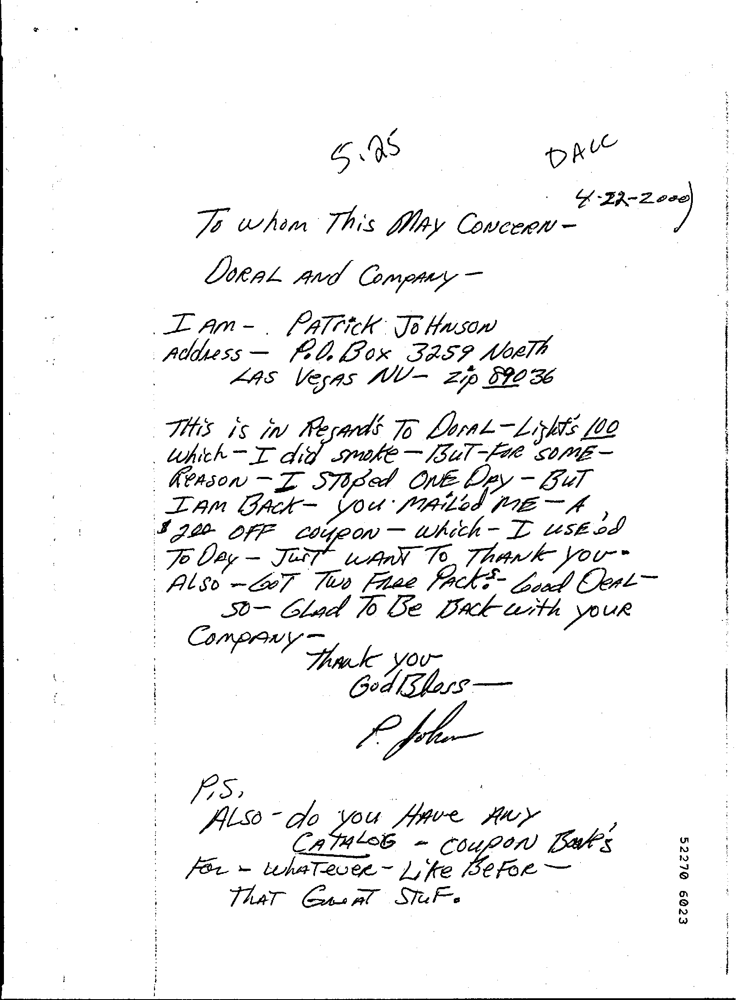 5.25
DALL
4-22-2000
To whom This MAY CONCERN-
DORAL AND COMPANY-
I AM- PATRICK JOHNSON
Address- P.O. BOX 3259 NORTH
LAS VegAS NV- Zip 89036
THis is iN RegARd's To DORAL-Light's 100
which-I did smoke-BUT-FOR SOME-
REASON-I STOPed ONE DAY-BUT
I AM BACK- you MAILed ME-A
$2.00 OFF COUPON-which-I USEed
TO DAY- JUST WANT To THANK you-
ALSO-GOT TWO FREE PACK'S- Good DEAL-
SO- GLAd To Be BACK with youR
COMPANY-
THANK you
God Bless-
P. John
P.S.
ALSO-do you HAVE ANY
CATALOG - COUPON Book's
FOR - WHATEVER-Like BEFOR-
THAT GREAT STUF.
52270 6023